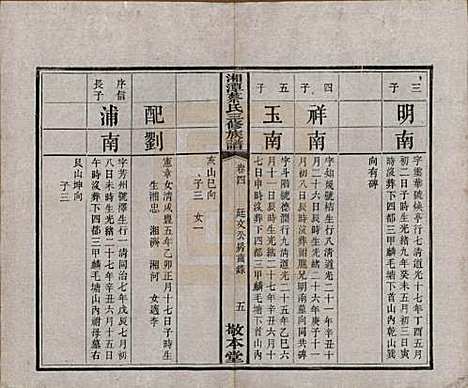 三子
明南
字靈華號秋亭行七清道光十七年丁酉五月
初二日子時生光緒九年癸未五月初三日寅
時沒葬下四都三甲麟毛墩下首山內
向有碑
四子
祥南
字知幾號桔生行八清道光二十一年辛丑十
月二十六日辰時生光緒二十六年庚子十一
月初八日辰時沒葬附胞兄明南墓向同共碑
五子
玉南
字斗階號德潤行九清道光二十五年乙巳六
月十五日辰時生光緒二十七年辛丑六月十
八日辰時沒葬下四都三甲麟毛墩下首山內
湘潭蔡氏三修族譜
卷四
廷文公房齒錄
五
敬本堂
亥山巳向
子三 女一
配劉
憲章女清咸豐五年乙卯正月十七日子時
生 湘忠 湘濟 湘河 女適李
序信長子
浦南
字芳州號澤生行一清同治七年戊辰七月初
八日未時生光緒二十七年辛丑六月二十六日
午時沒葬下四都三甲麟毛墩山內祖母墓右
艮山坤向
子三